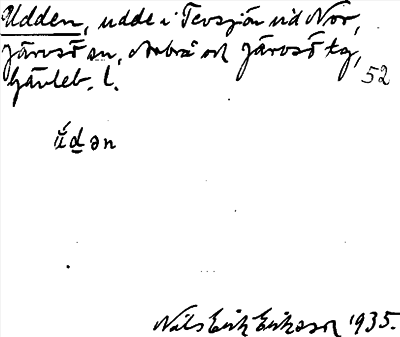 Udden, udde i Tevsjön vid Nor,
Järvsö sn, Arbrå och Järvsö tg,
Gävleb. l. 52
ú̱d̲ən
Nils Erik Eriksson 1935.